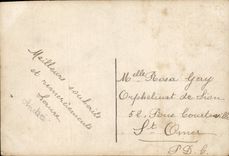 Meilleurs souhaits
et remerciements
Louise
Melle Rosa Gay
Orphelinat de Sion
52 Rue Courteville
St Omer
P. D. C.